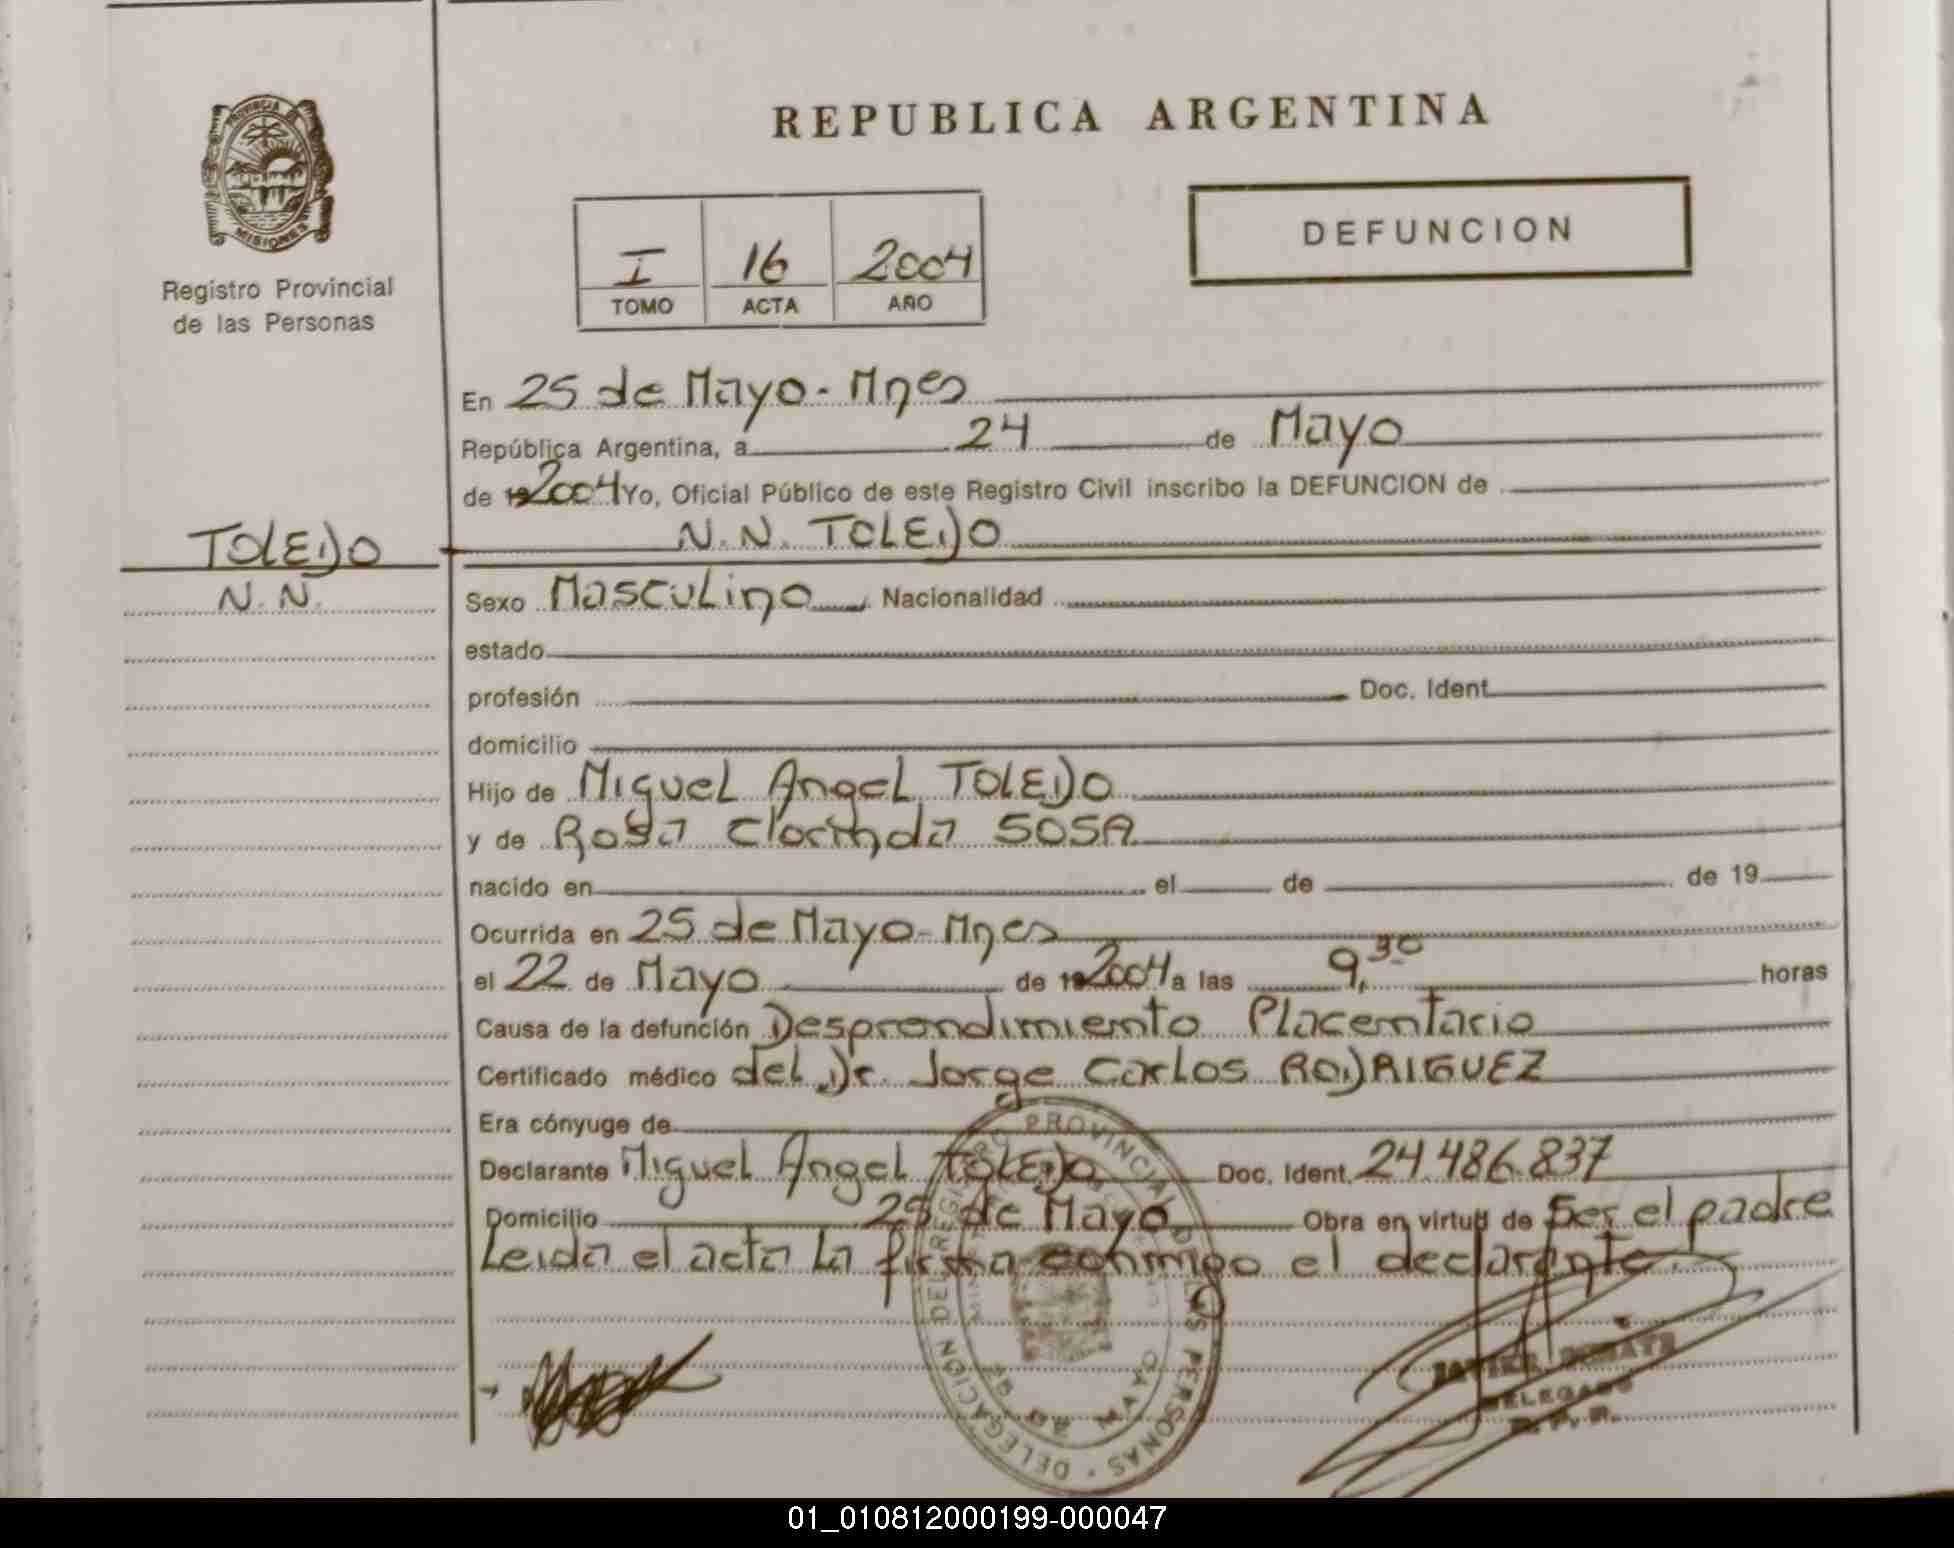 REPUBLICA ARGENTINA
PROVINCIA DE
MISIONES
Registro Provincial
de las Personas
I 16 2004
TOMO ACTA AÑO
DEFUNCION
En 25 de Mayo - Mnes
República Argentina, a 24 de Mayo
de 19 2004 Yo, Oficial Público de este Registro Civil inscribo la DEFUNCION de
N.N. TOLEDO
TOLEDO
N.N.
Sexo Masculino Nacionalidad
estado
profesión Doc. Ident.
domicilio
Hijo de Miguel Angel TOLEDO
y de Rosa Clorinda SOSA
nacido en el de de 19
Ocurrida en 25 de Mayo - Mnes
el 22 de Mayo de 19 2004 a las 9,30 horas
Causa de la defunción Desprendimiento Placentario
Certificado médico del Dr. Jorge Carlos RODRIGUEZ
Era cónyuge de
Declarante Miguel Angel TOLEDO Doc. Ident. 24.486.837
Domicilio 25 de Mayo Obra en virtud de Ser el padre
Leida el acta la firma conmigo el declarante.
DELEGACION DEL REGISTRO PROVINCIAL DE LAS PERSONAS
25 DE MAYO
JAVIER
DELEGADO
R. P. P.
01_010812000199-000047